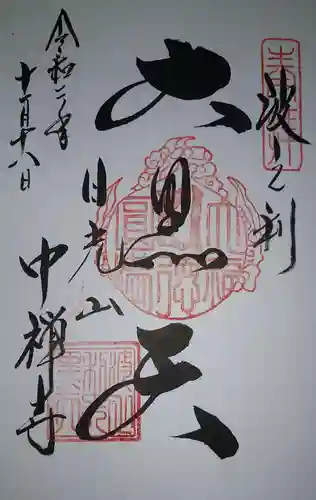 波之利
大黒天
日光山
中禅寺
令和二年
十一月十八日